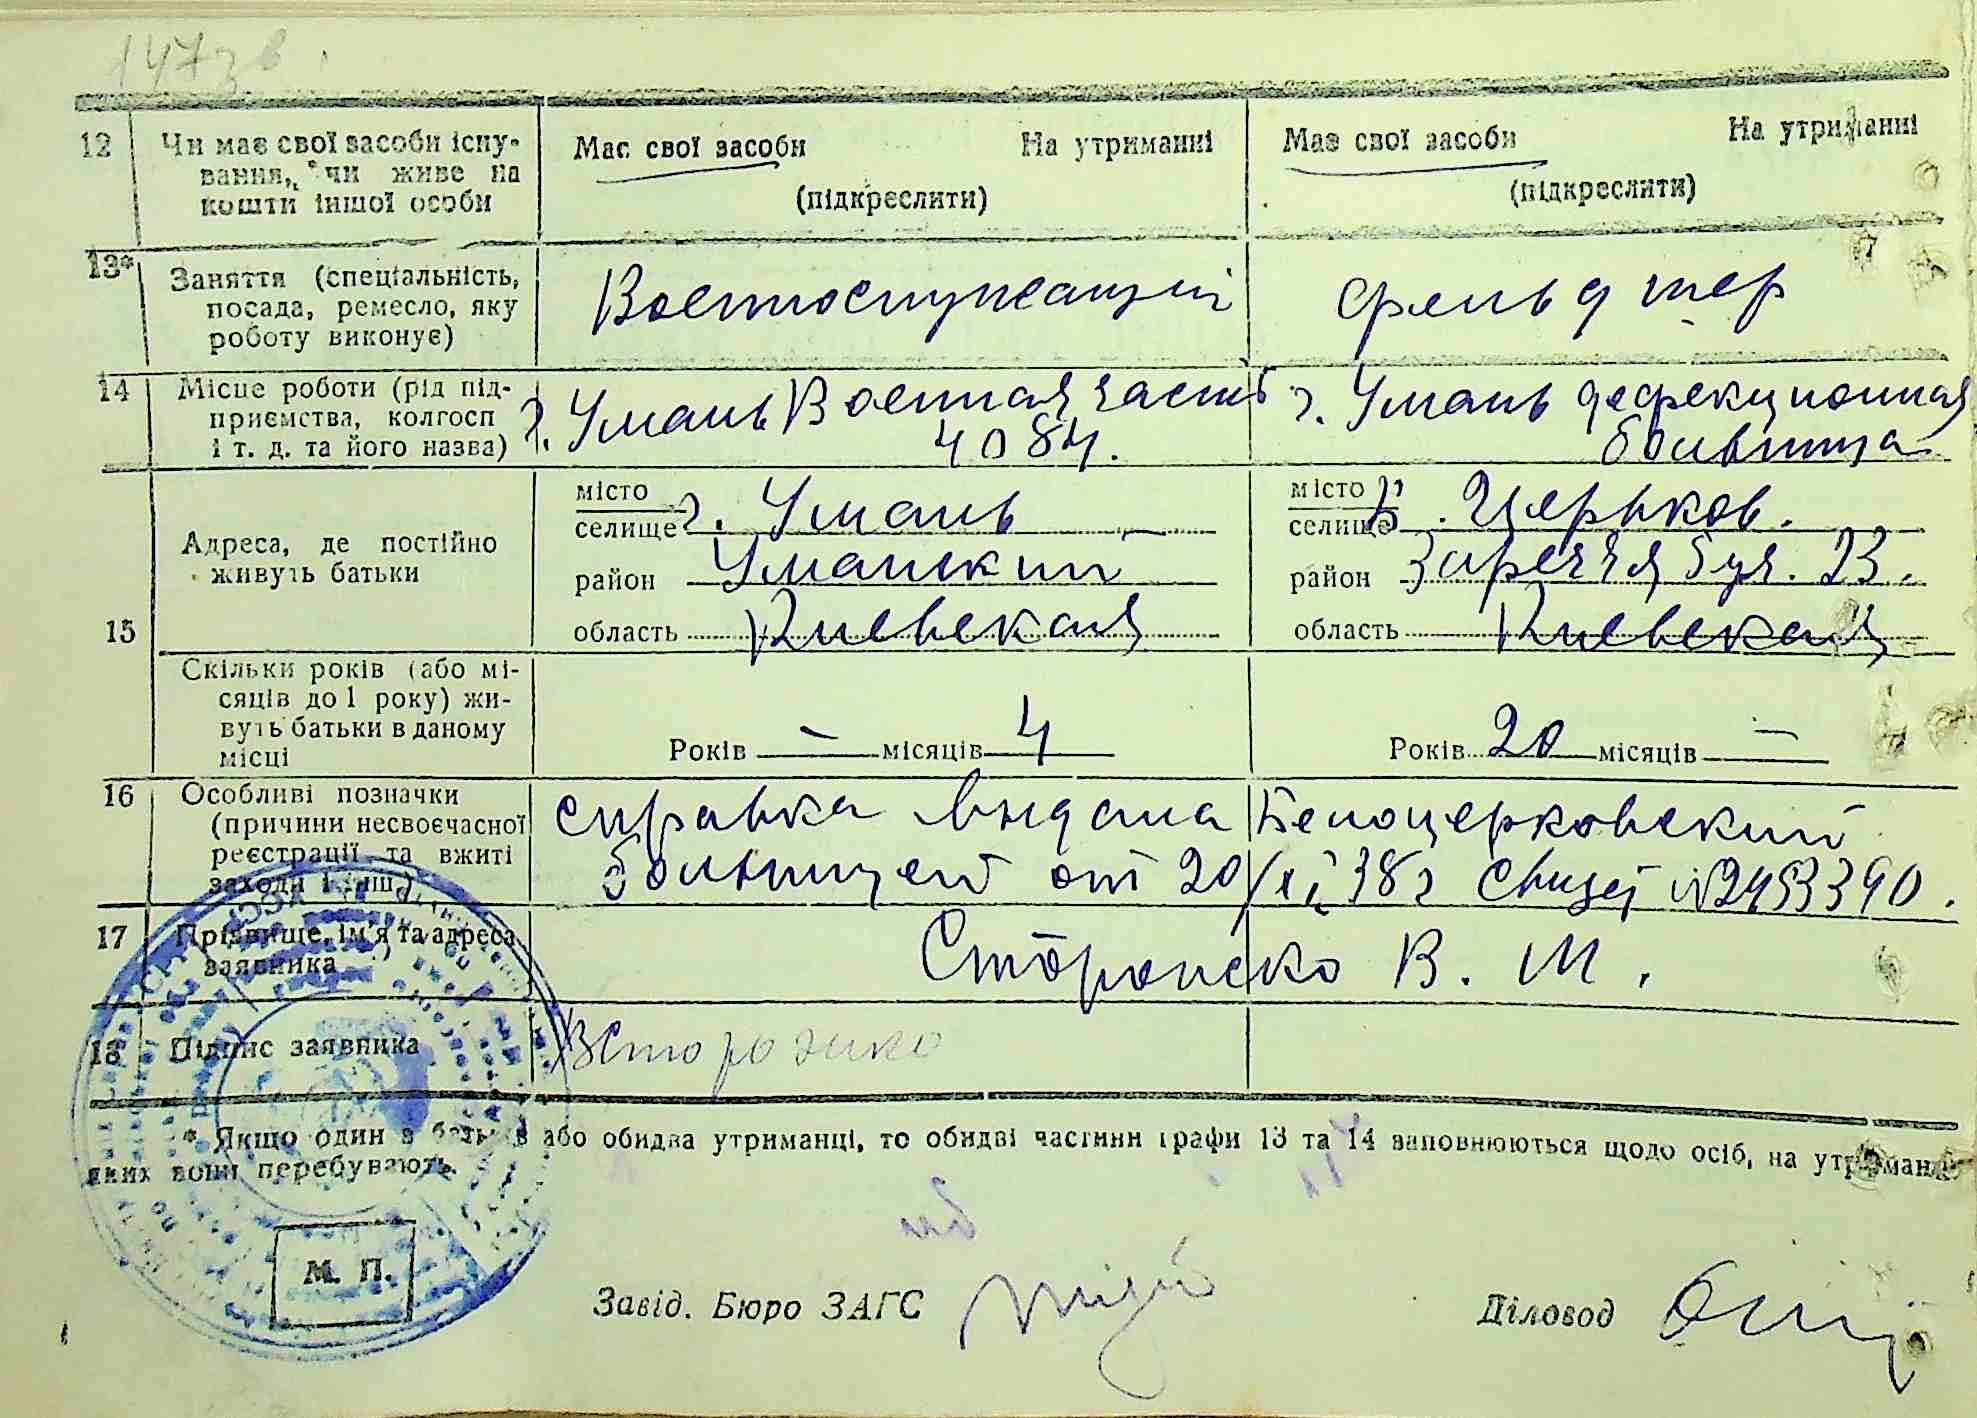 147зв
12 Чи має свої засоби існу-
вання, чи живе на
кошти іншої особи
Має свої засоби На утриманні
(підкреслити)
Має свої засоби На утриманні
(підкреслити)
13* Заняття (спеціальність,
посада, ремесло, яку
роботу виконує)
Военнослужащий
фельдшер
14 Місце роботи (рід під-
приємства, колгосп
і т. д. та його назва)
г. Умань Военная часть
4084.
г. Умань дефекционная
больница
15 Адреса, де постійно
живуть батьки
місто
селище г. Умань
район Уманский
область Киевская
місто
селище Б. Церьков.
район Заречья бул. 23.
область Киевская
Скільки років (або мі-
сяців до 1 року) жи-
вуть батьки в даному
місці
Років — місяців 4
Років 20 місяців —
16 Особливі позначки
(причини несвоєчасної
реєстрації та вжиті
заходи і інш.)
справка выдана Белоцерковский
больницей от 20/XI 38 г свидет №2453390.
17 Прізвище, ім'я та адреса
заявника
Стороженко В. М.
18 Підпис заявника
ВСтороженко
* Якщо один з батьків або обидва утриманці, то обидві частини графи 13 та 14 заповнюються щодо осіб, на утриманні
яких вони перебувають.
М. П.
Завід. Бюро ЗАГС
Діловод